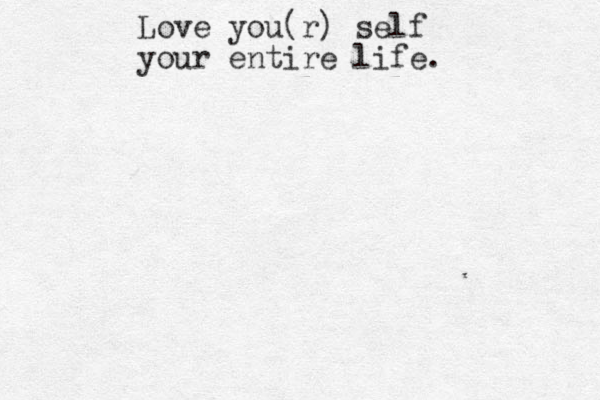 Love you(r) self
your entire life.